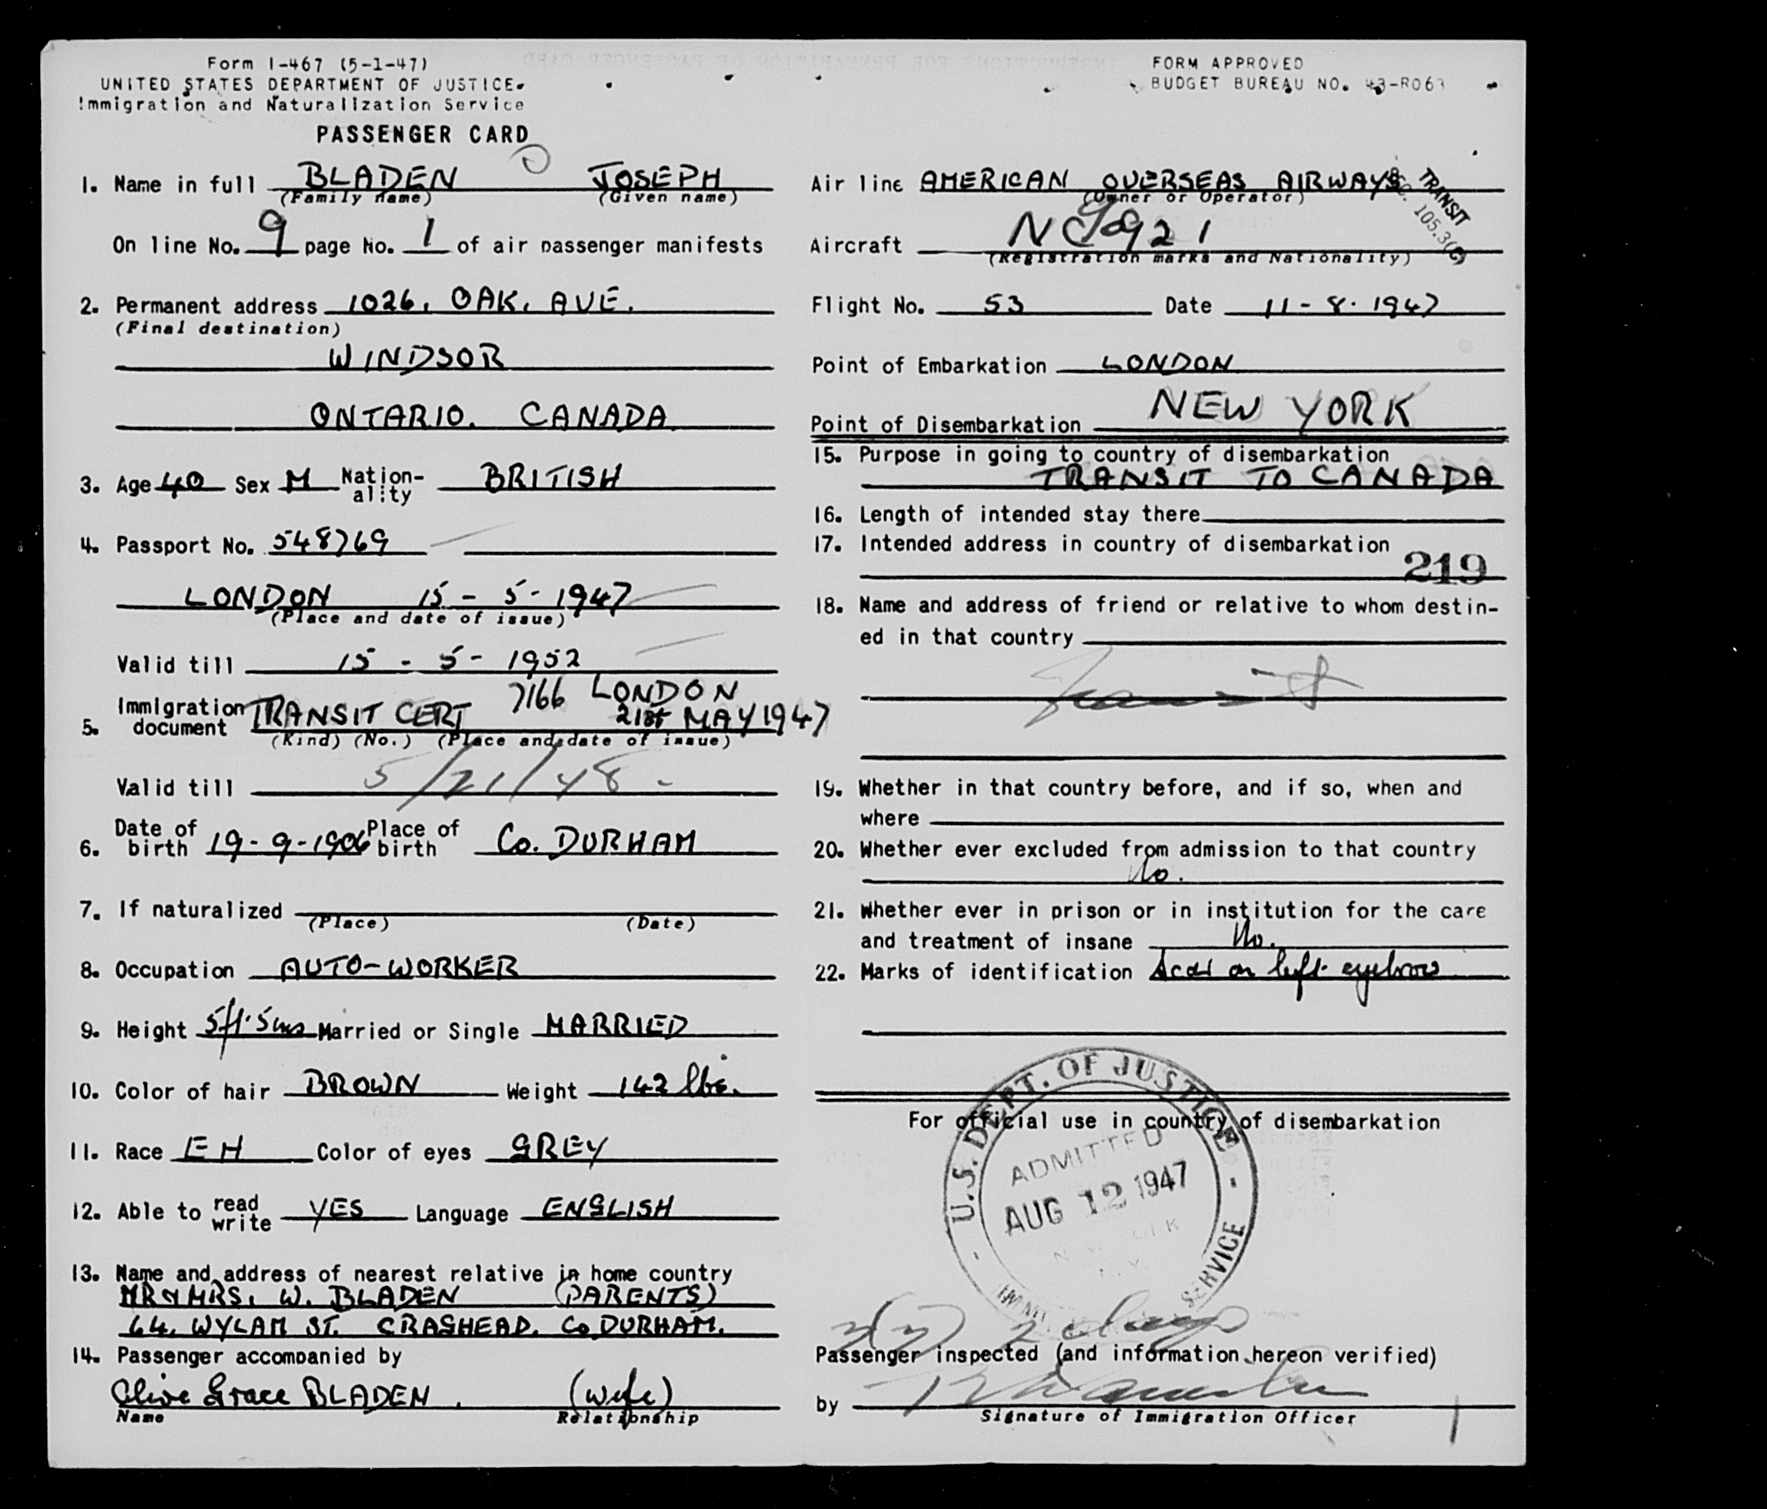 Form I-467 (5-1-47)
UNITED STATES DEPARTMENT OF JUSTICE
Immigration and Naturalization Service
PASSENGER CARD
FORM APPROVED
BUDGET BUREAU NO. 43-R063
1. Name in full BLADEN JOSEPH
(Family name) (Given name)
On line No. 9 page No. 1 of air passenger manifests
2. Permanent address 1026, OAK. AVE.
(Final destination)
WINDSOR
ONTARIO. CANADA
3. Age 40 Sex M Nation-ality BRITISH
4. Passport No. 548769
LONDON 15 - 5 - 1947
(Place and date of issue)
Valid till 15 - 5 - 1952
7166 LONDON
5. Immigration document TRANSIT CERT 21st MAY 1947
(Kind) (No.) (Place and date of issue)
Valid till 5/21/48 -
6. Date of birth 19-9-1906 Place of birth Co. DURHAM
7. If naturalized
(Place) (Date)
8. Occupation AUTO-WORKER
9. Height 5ft. 5ins Married or Single MARRIED
10. Color of hair BROWN Weight 142 lbs.
11. Race EH Color of eyes GREY
12. Able to read write YES Language ENGLISH
13. Name and address of nearest relative in home country
MR & MRS. W. BLADEN (PARENTS)
64, WYLAM ST. CRAGHEAD. Co DURHAM.
14. Passenger accompanied by
Olive Grace BLADEN. (wife)
Name Relationship
Air line AMERICAN OVERSEAS AIRWAYS
(Owner or Operator)
TRANSIT
SEC. 105.3(C)
Aircraft
(Registration marks and Nationality)
Flight No. 53 Date 11 - 8 - 1947
Point of Embarkation LONDON
Point of Disembarkation NEW YORK
15. Purpose in going to country of disembarkation
TRANSIT TO CANADA
16. Length of intended stay there
17. Intended address in country of disembarkation
219
18. Name and address of friend or relative to whom destin-
ed in that country
Transit
19. Whether in that country before, and if so, when and
where
20. Whether ever excluded from admission to that country
No.
21. Whether ever in prison or in institution for the care
and treatment of insane No.
22. Marks of identification Scar on left eyebrow
For official use in country of disembarkation
U.S. DEPT. OF JUSTICE
ADMITTED
AUG 12 1947
SERVICE
3(3) 2 days
Passenger inspected (and information hereon verified)
by
Signature of Immigration Officer